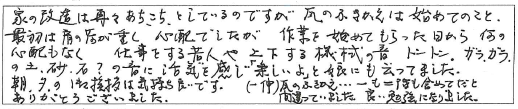 家の改造は再々あちこちとしているのですが 瓦のふきかえは始めてのこと。
最初は雨の音が重く 心配でしたが 作業を始めてもらった日から 何の
心配もなく 仕事をする若人や 上下する機械の音 ドンドン。ガラガラ
の土、砂、石？の音に活気を感じ楽しいよと娘にも云ってました。
朝、夕の 挨拶は気持ち良いです。 (一伸)瓦のふきかえ…
ありがとうございました。 間違っていました 良い勉強になりました。